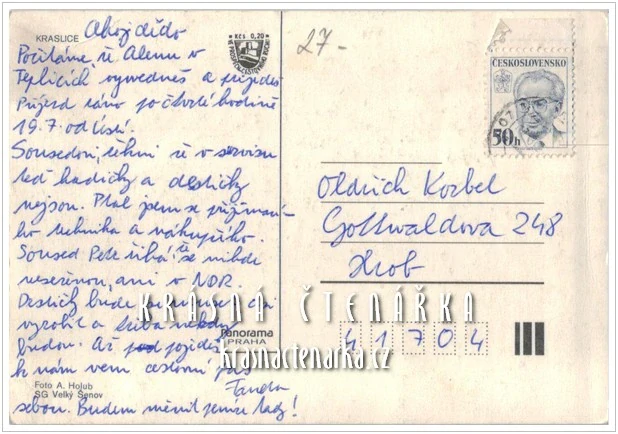 KRASLICE
Ahoj dědo
Počítáme, že Alenu v
Teplicích vyzvedneš a přijedeš
Příjezd ráno po čtvrté hodině
19.7. odjistí.
Sousedovi řekni že v servisu
teď hadičky a destičky
nejsou. Ptal jsem se přijímací-
ho technika a nákupčího.
Soused Petr říká že se nikde
neseženou, ani v NDR.
Destičky bude si muset
vyrobit a snad někdy
budou. Až pojedeš
k nám vem cestovní pas
Fanda
sebou. Budem měnit peníze tady!
Foto A. Holub
SG Velký Šenov
Kčs 0,20
Panorama
PRAHA
27-
ČESKOSLOVENSKO
50h
Oldřich Korbel
Gottwaldova 248
Hrob
41704
KRÁSNÁ ČTENÁŘKA
krasnactenarka.cz